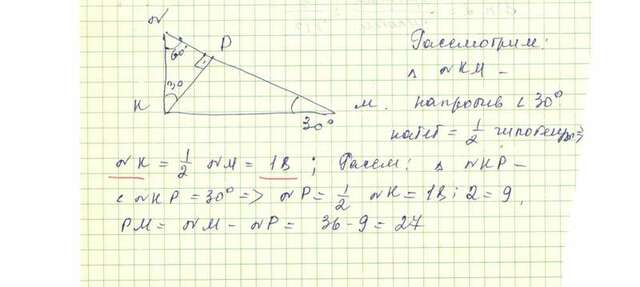 N
60°
P
30
K
30°
M.
Рассмотрим:
Δ NKM –
напротив < 30°
катет = 1/2 гипотенузы =>
NK = 1/2 NM = 18 ; Рассм: Δ NKP –
< NKP = 30° => NP = 1/2 NK = 18 : 2 = 9,
PM = NM – NP = 36 - 9 = 27